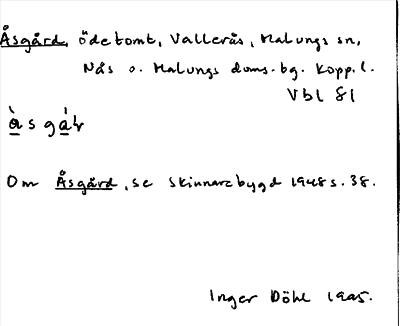 Åsgård, ödetomt, Vallerås, Malungs sn,
Nås o. Malungs doms.bg. Kopp.l.
Vbl 81
Om Åsgård, se Skinnarebygd 1948 s. 38.
Inger Döhl 1995.